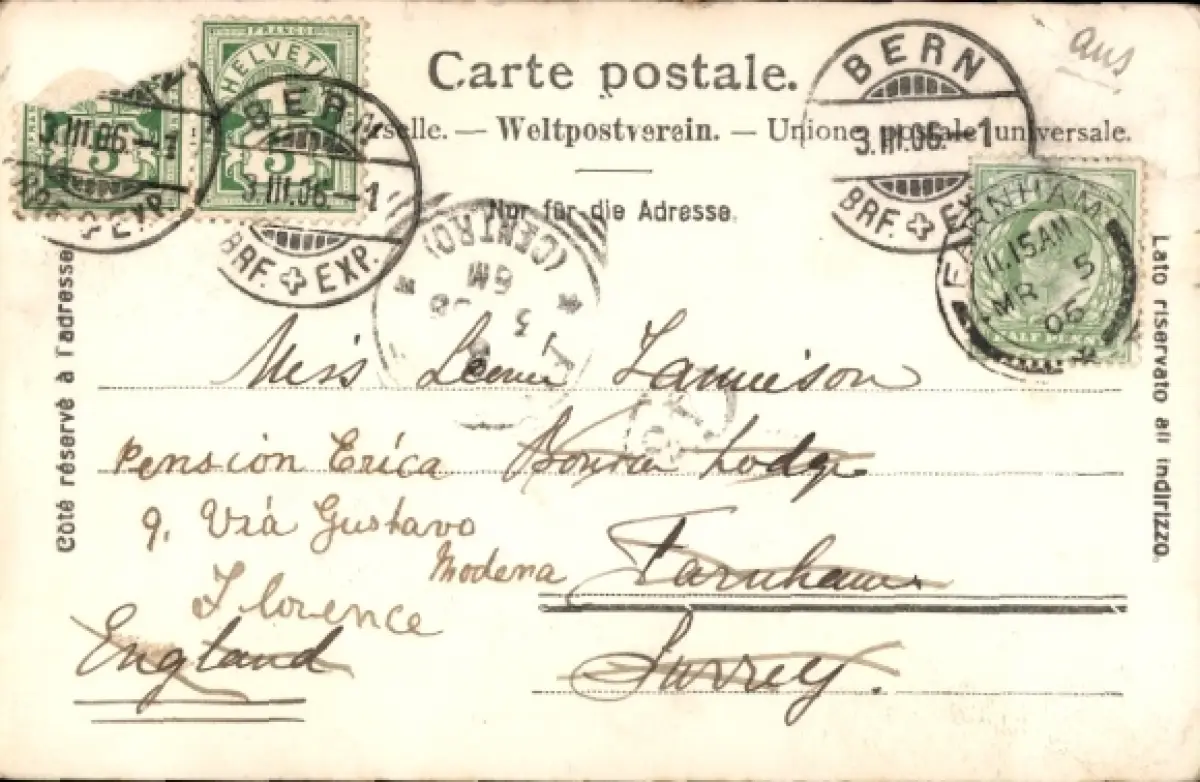 FRANCO
HELVETIA
5
5
Carte postale.
aus
BERN
3.III.06.-1
BRF. EXP.
3.III.06.-1
BRF. EXP.
BERN
3.III.06.-1
BRF. EX
Weltpostverein. — Unione postale universale.
Nur für die Adresse.
FARNHAM
11.15AM
MR 5
06
HALF PENNY
(CENTRO)
6M
3
Côté réservé à l'adresse
Lato riservato all indirizzo.
Miss Jamieson
Pension Erica Lodge
9. Via Gustavo
Modena Farnham
Florence
England Surrey.